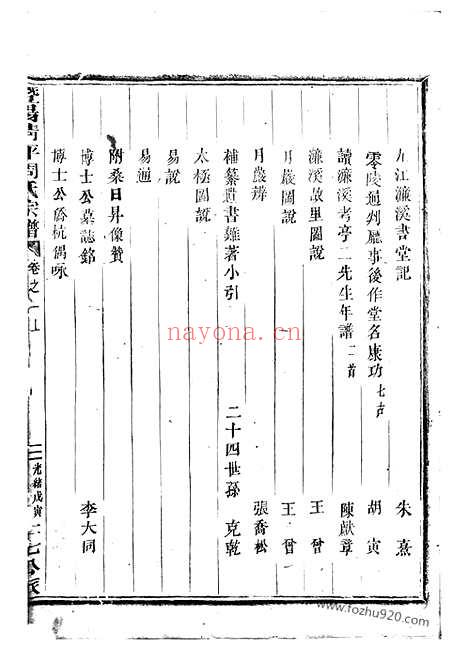 九江濂溪書堂記 朱熹
零陵通判廳事後作堂名康功 七古 胡寅
讀濂溪考亭二先生年譜 二首 陳獻章
濂溪故里圖說 王㑹
月巖圖說 王㑹
月巖辨 張喬松
補纂遺書雜著小引 二十四世孫 克乾
太極圖說
易說
易通
附桑日昇像贊
博士公墓誌銘 李大同
博士公寓杭偶咏
暨陽清平周氏宗譜 卷之 上
光緒戊寅
nayona.cn
www.fozhu920.com